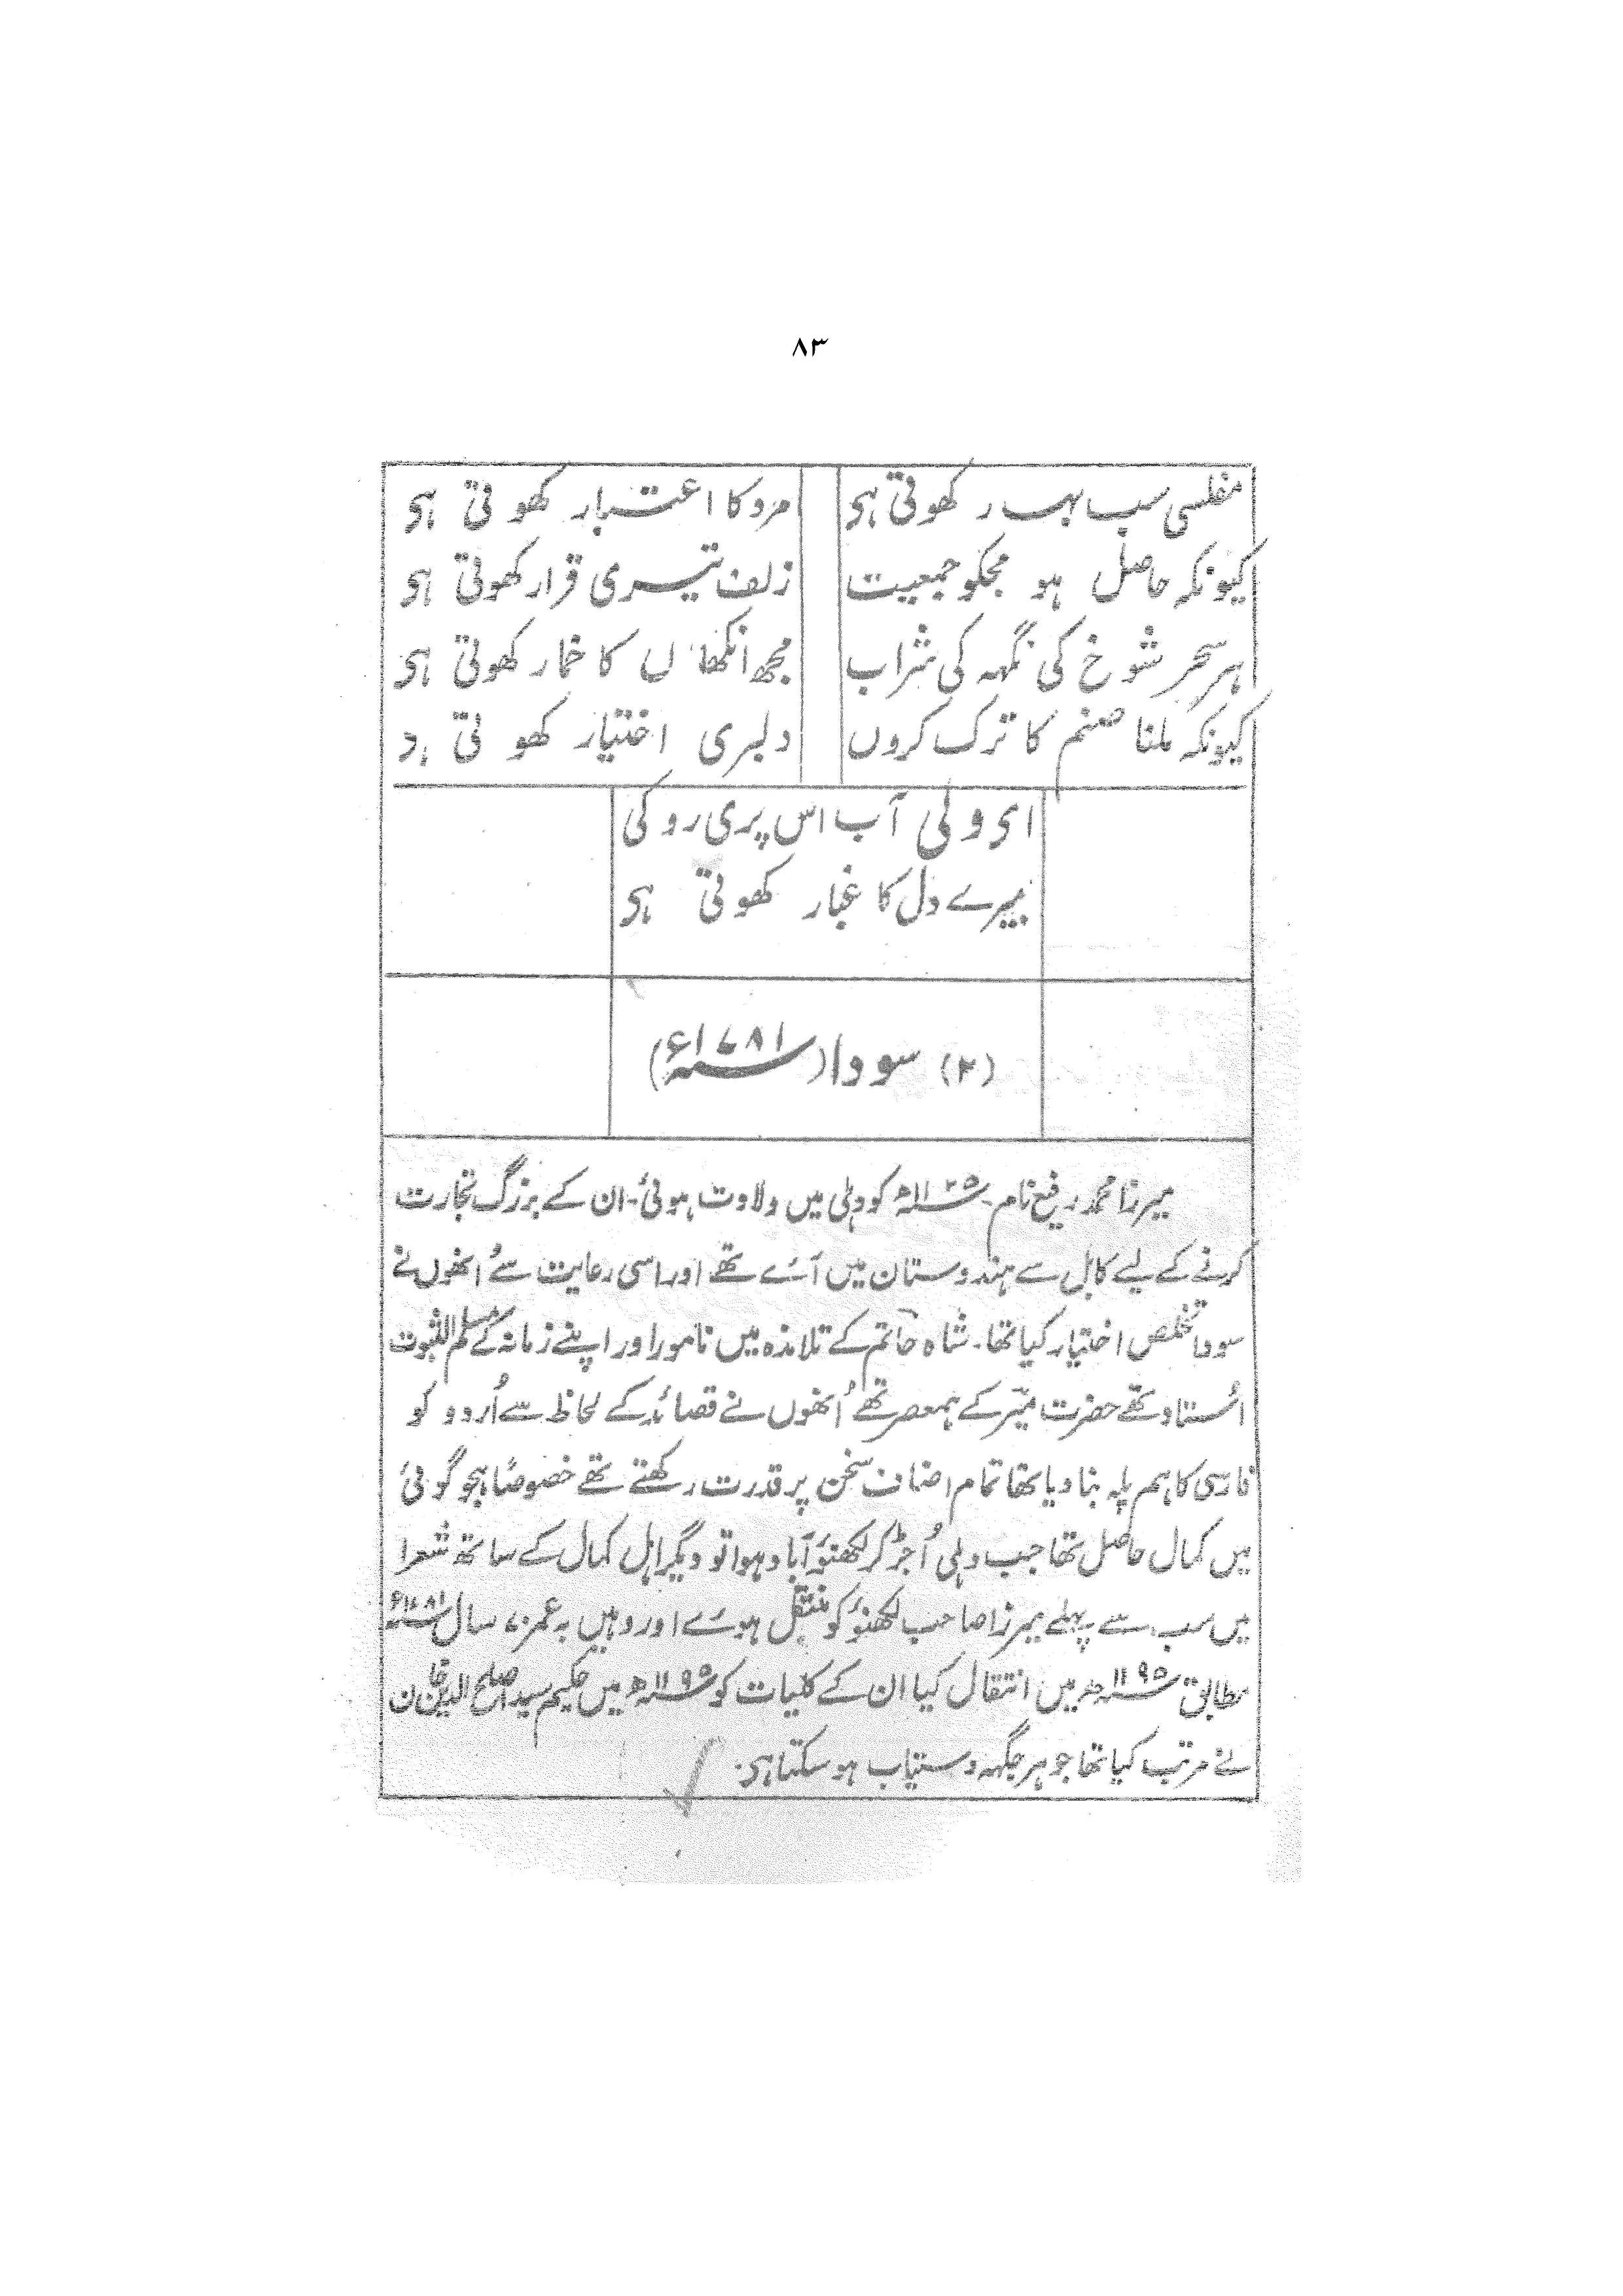 ۸۳
مفلسی سب بہار کھوتی ہی مرد کا اعتبار کھوتی ہی
کیونکہ حاصل ہو مجکو جمعیت زلف تیری قرار کھوتی ہی
ہر سحر شوخ کی نگہہ کی شراب مجھ انکھاں کا خمار کھوتی ہی
کیونکہ ملنا صنم کا ترک کروں دلبری اختیار کھوتی ہد
ای ولی آب اس پری رو کی
میرے دل کا غبار کھوتی ہی
(۲) سودا (سنہ ۱۷۸۱ء)
میرزا محمد رفیع نام۔ سنہ ۱۱۲۵ھ کو دہلی میں ولادت ہوئی۔ ان کے بزرگ تجارت
کرنے کے لیے کابل سے ہندوستان میں آئے تھے اور اسی رعایت سے اُنھوں نے
سودا تخلص اختیار کیا تھا۔ شاہ حاتم کے تلامذہ میں نامور اور اپنے زمانہ کے مسلم الثبوت
اُستاد تھے حضرت میر کے ہمعصر تھے اُنھوں نے قصائد کے لحاظ سے اُردو کو
فارسی کا ہم پلہ بنا دیا تھا تمام اصناف سخن پر قدرت رکھتے تھے خصوصًا ہجو گوئی
میں کمال حاصل تھا جب دہلی اُجڑ کر لکھنؤ آباد ہوا تو دیگر اہل کمال کے ساتھ شعرا
میں سب سے پہلے میرزا صاحب لکھنؤ کو منتقل ہوئے اور وہیں بہ عمر ۷۰ سال سنہ ۱۷۸۱ء
مطابق سنہ ۱۱۹۵ھ میں انتقال کیا ان کے کلیات کو سنہ ۱۱۹۵ھ میں حکیم سید اصلح الدین خان
نے مرتب کیا تھا جو ہر جگہہ دستیاب ہو سکتا ہی۔